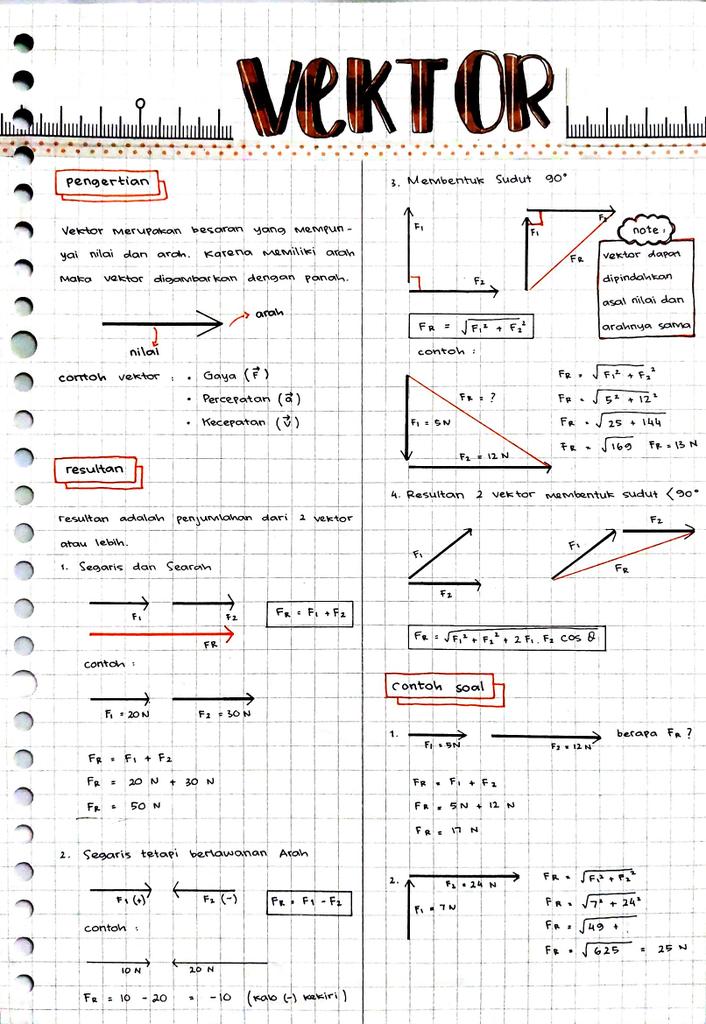 VEKTOR
pengertian
Vektor merupakan besaran yang mempun-
yai nilai dan arah. Karena memiliki arah
maka vektor digambarkan dengan panah.
arah
nilai
contoh vektor : • Gaya (F⃗)
• Percepatan (a⃗)
• Kecepatan (v⃗)
resultan
resultan adalah penjumlahan dari 2 vektor
atau lebih.
1. Segaris dan Searah
F₁ F₂
FR = F₁ + F₂
FR
contoh :
F₁ = 20 N F₂ = 30 N
FR = F₁ + F₂
FR = 20 N + 30 N
FR = 50 N
2. Segaris tetapi berlawanan Arah
F₁ (+) F₂ (-)
FR = F₁ - F₂
contoh :
10 N 20 N
FR = 10 - 20 = -10 (kalo (-) kekiri)
3. Membentuk Sudut 90°
F₁
F₂
F₁
F₂
FR
note :
vektor dapat
dipindahkan
asal nilai dan
arahnya sama
FR = √F₁² + F₂²
contoh :
FR = ?
F₁ = 5 N
F₂ = 12 N
FR = √F₁² + F₂²
FR = √5² + 12²
FR = √25 + 144
FR = √169 FR = 13 N
4. Resultan 2 vektor membentuk sudut < 90°
F₁
F₂
F₂
F₁
FR
FR = √F₁² + F₂² + 2 F₁ . F₂ cos θ
contoh soal
1. F₁ = 5N F₂ = 12 N berapa FR ?
FR = F₁ + F₂
FR = 5 N + 12 N
FR = 17 N
2. F₂ = 24 N
F₁ = 7 N
FR = √F₁² + F₂²
FR = √7² + 24²
FR = √49 + .
FR = √625 = 25 N